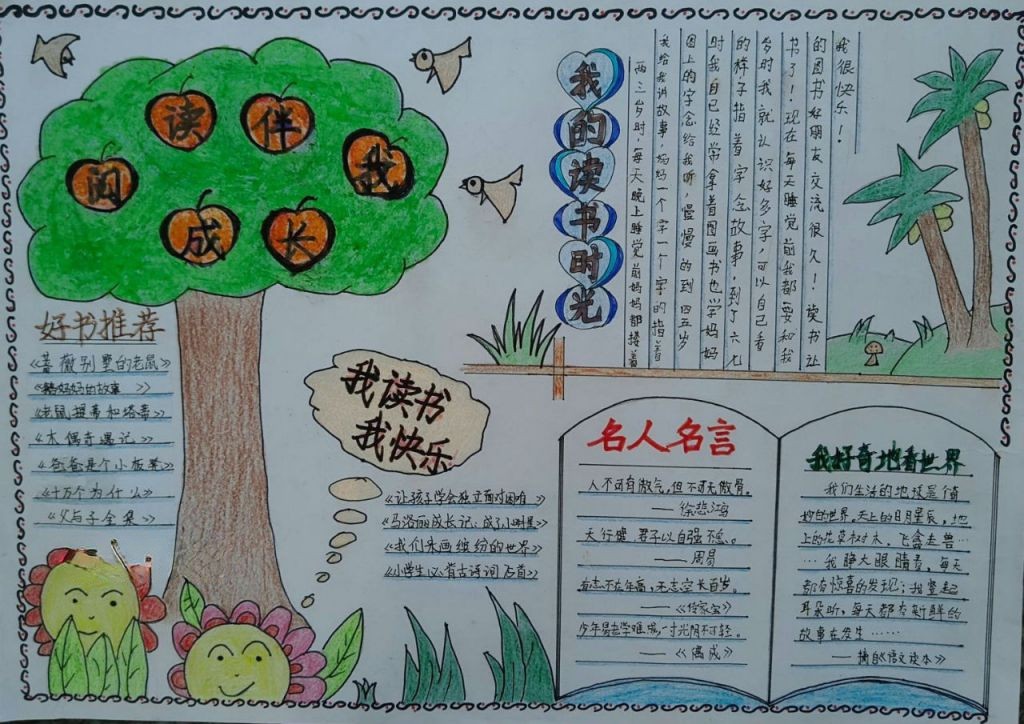 阅读伴我
成长
我的读书时光
两三岁时，每天晚上睡觉前妈妈都搂着
我给我讲故事，妈妈一个字一个字的指着
图上的字念给我听，慢慢的到四五岁
时我自己经常拿着图画书也学妈妈
的样子指着字念故事，到了六七
岁时我就认识好多字，可以自己看
书了！现在每天睡觉前我都要和我
的图书好朋友交流很久！读书让
我很快乐！
好书推荐
《蔷薇别墅的老鼠》
妈妈的故事》
《老鼠提蒂和塔蒂》
《木偶奇遇记》
《爸爸是个小板凳》
《十万个为什么》
《父与子全集》
我读书
我快乐
《让孩子学会独立面对困难》
《马洛丽成长记
《我们来画缤纷的世界》
《小学生必背古诗词
名人名言
人不可有傲气，但不可无傲骨。
——徐悲鸿
天行健，君子以自强不息。
——周易
有志不在年高，无志空长百岁。
——《传家宝》
少年易老学难成，一寸光阴不可轻。
——《偶成》
我好奇地看世界
我们生活的地球是个奇
妙的世界。天上的日月星辰，地
上的花草树木，飞禽走兽…
…我睁大眼睛看，每天
都有惊喜的发现；我竖起
耳朵听，每天都有新鲜的
故事在发生……
——摘自《语文读本》